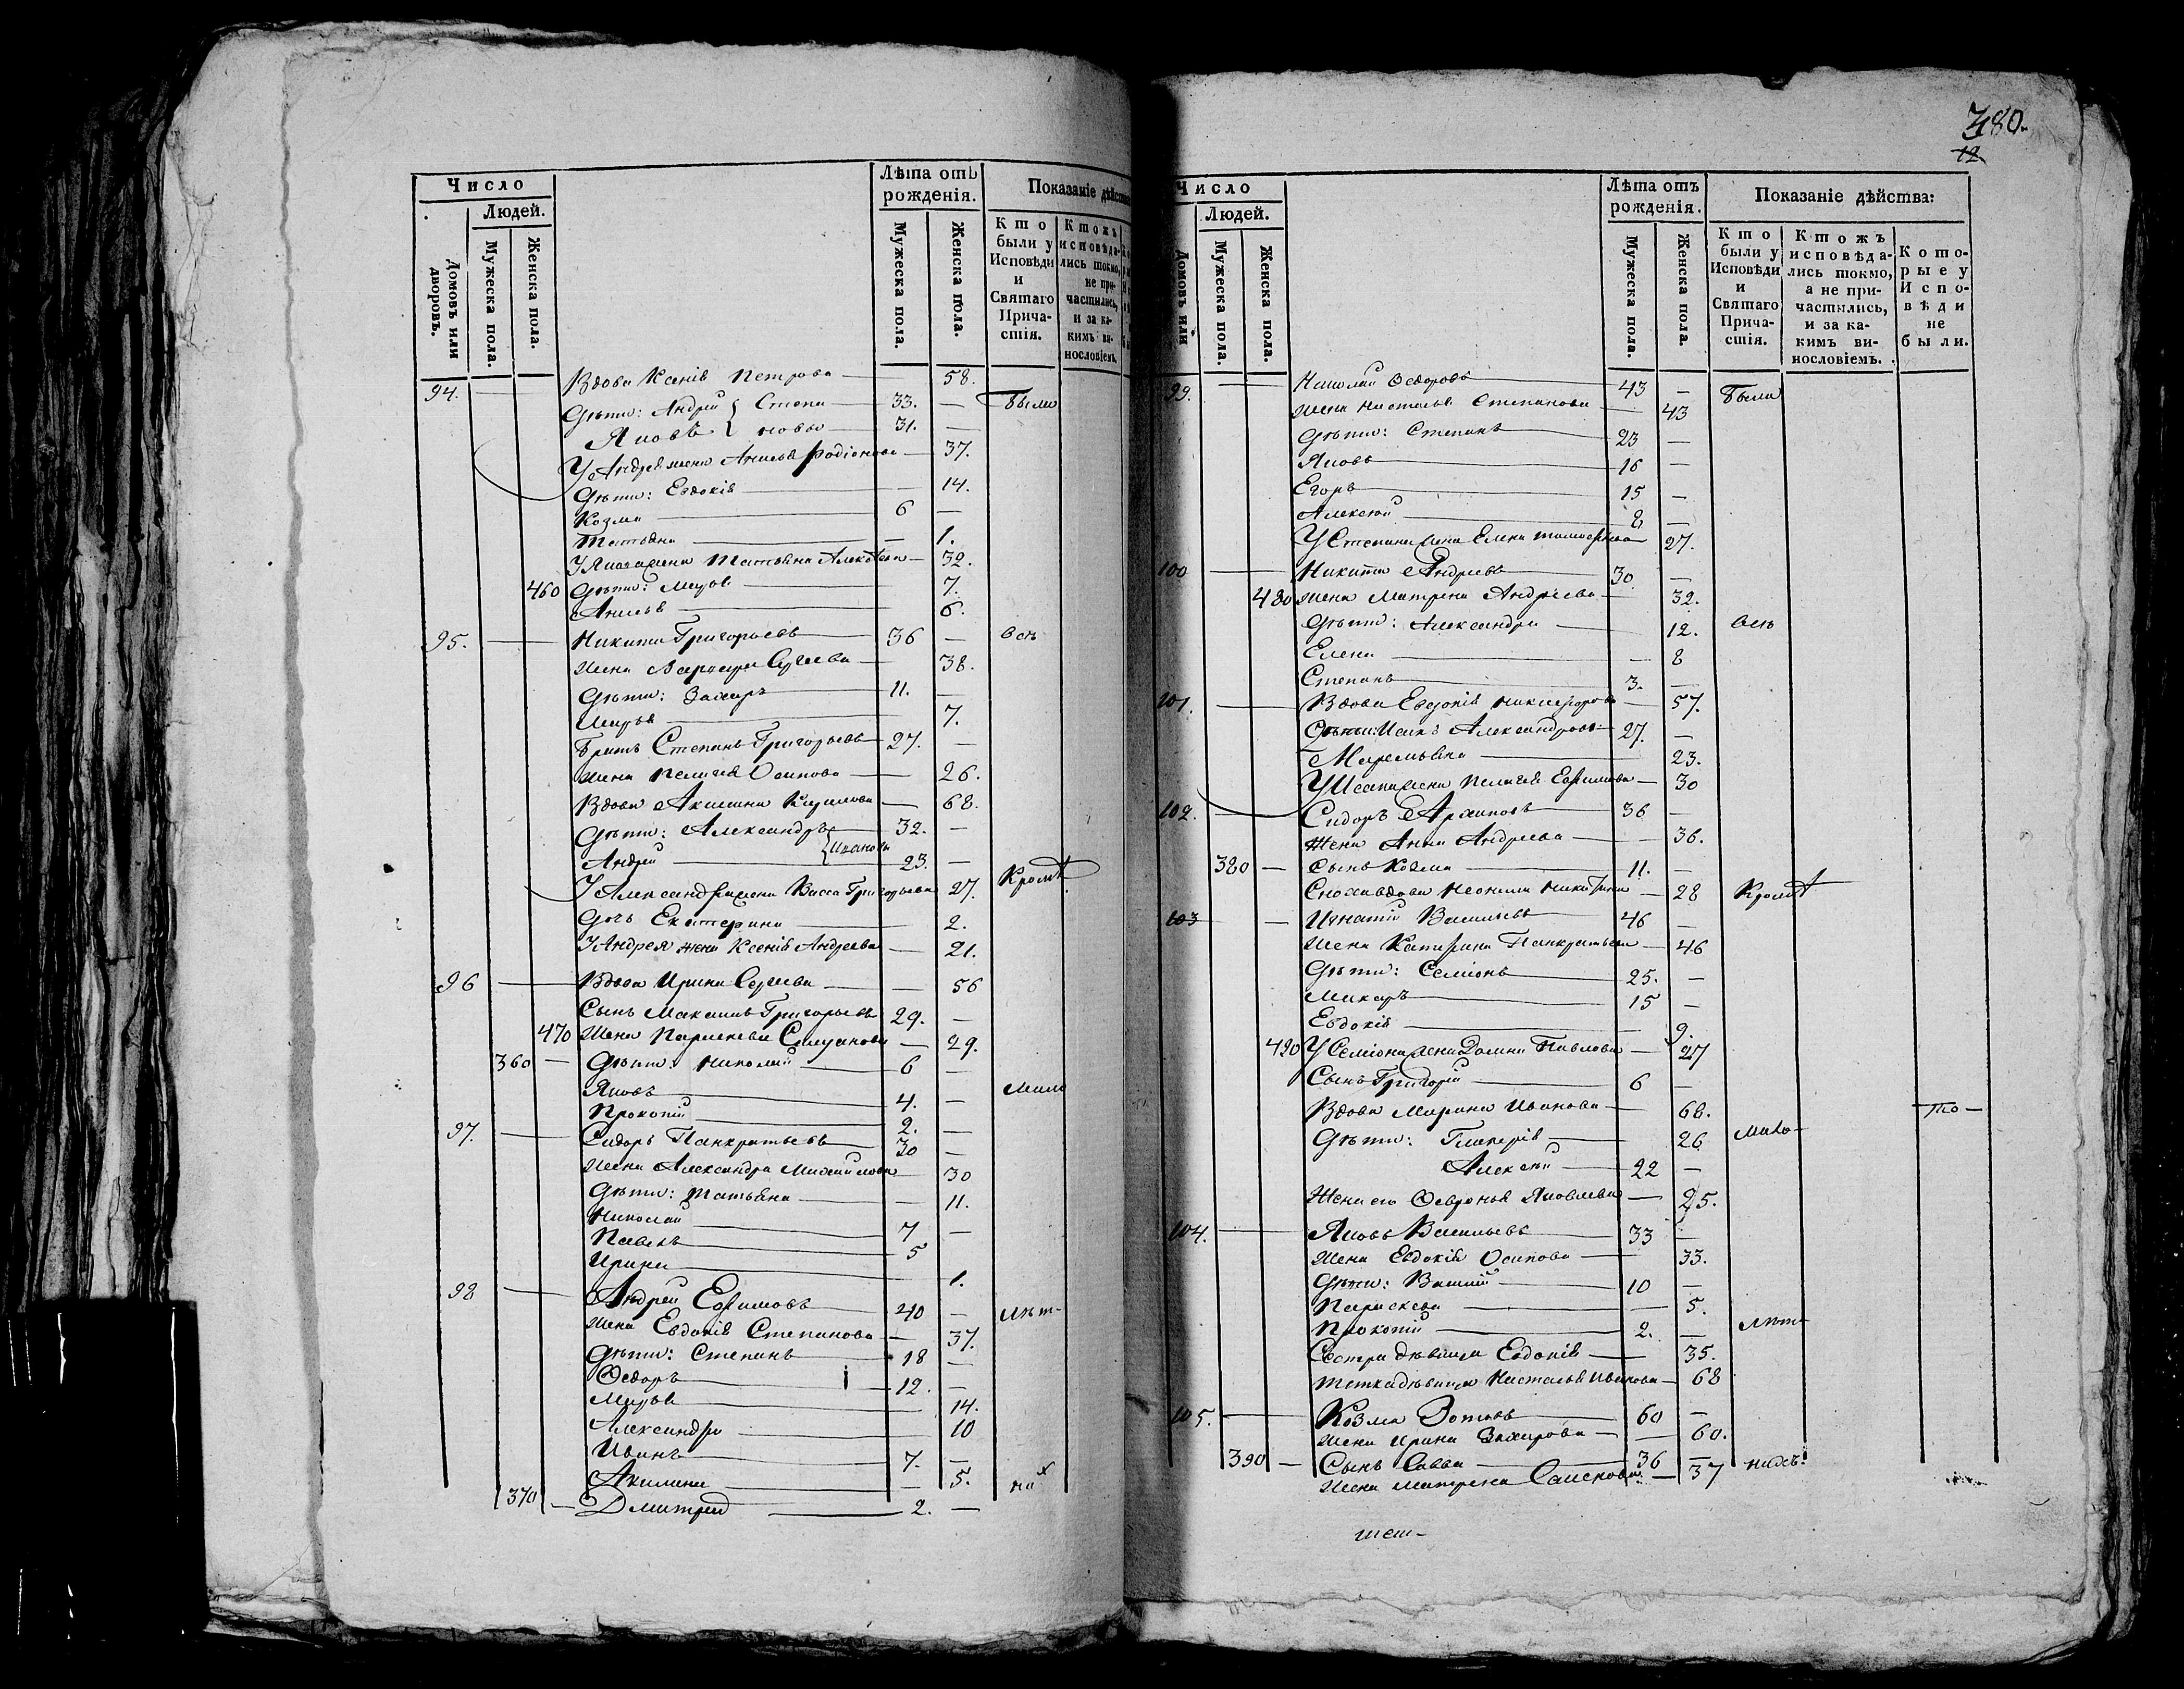 380.
12
Число
Людей.
Домовъ или дворовъ.
Мужеска пола.
Женска пола.
Лѣта отъ рожденія.
Мужеска пола.
Женска пола.
Показаніе дѣйства
Кто были у Исповѣди и Святаго Причастія.
Ктожъ исповѣдались токмо, не причастились, и за какимъ винословіемъ.
94. — Вдова Ксенія Петрова — 58. Были
Дѣти: Андрей { Степа — 33. —
Яковъ { новы — 31. —
У Андрея жена Анисья Родіонова — 37.
Дѣти: Евдокія — 14.
Козма — 6 —
Татьяна — 1.
У Якова жена Татьяна Алексѣева — 32.
460 Дѣти: Марья — 7.
Анисья — 6.
95. — Никита Григорьевъ — 36 — всѣ
Жена Варвара Сергеева — 38.
Дѣти: Захаръ — 11. —
Марья — 7.
Братъ Степанъ Григорьевъ — 27. —
Жена Пелагея Осипова — 26.
Вдова Акилина Кирилова — 68.
Дѣти: Александръ — 32. —
{ Ивановы
Андрей — 23. —
У Александра жена Васса Григорьева 27. Кромѣ
Дочь Екатерина — 2.
У Андрея жена Ксенія Андреева — 21.
96 — Вдова Ирина Сергеева — 56
Сынъ Максимъ Григорьевъ 29. —
470 Жена Параскева — 29.
360 — Дѣти: Николай — 6 —
Яковъ — 4. — мало
Прокопій — 2. —
97. — Сидоръ Панкратьевъ — 30 —
Жена Александра Михайлова 30
Дѣти: Татьяна — 11.
Николай — 7 —
Павелъ — 5
Ирина — 1.
98 — Андрей Ефимовъ — 40 — лѣт-
Жена Евдокія Степанова — 37.
Дѣти: Степанъ — 18 —
Ѳедоръ — 12. —
Марья — 14.
Александра — 10
Иванъ — 7. —
Акилина — 5. них
370 — Дмитрей — 2. —
Число
Людей.
Домовъ или
Мужеска пола.
Женска пола.
Лѣта отъ рожденія.
Мужеска пола.
Женска пола.
Показаніе дѣйства:
Кто были у Исповѣди и Святаго Причастія.
Ктожъ исповѣдались токмо, а не причастились, и за какимъ винословіемъ.
Которые у Исповѣди не были.
99. — Николай Ѳедоровъ — 43 — Были
Жена Настасья Степанова — 43
Дѣти: Степанъ — 23 —
Яковъ — 16 —
Егоръ — 15 —
Алексѣй — 8 —
У Степана жена Елена Тимоѳеева 27.
100 — Никита Андреевъ — 30 —
480 Жена Матрена Андреева — 32.
Дѣти: Александра — 12. всѣ
Елена — 8
Степанъ — 3. —
101. — Вдова Евдокія Никифорова — 57.
Дѣти: Исакъ Александровъ — 27. —
Маремьяна — 23.
У Исака жена Пелагея Ефимова — 30
102. — Сидоръ Архиповъ — 36 —
Жена Анна Андреева — 36.
380 — Сынъ Козма — 11. —
Сноха вдова Неонила Никитина — 28 Кромѣ
103 — Игнатій Васильевъ — 46 —
Жена Катерина Панкратьева — 46
Дѣти: Семіонъ — 25. —
Макаръ — 15 —
Евдокія — 9.
490 У Семіона жена Домна Павлова — 27
Сынъ Григорій — 6 —
Вдова Марина Иванова — 68. то-
Дѣти: Гликерія — 26 мало-
Алексѣй — 22 —
Жена его Ѳевронья Яковлева — 25.
104. — Яковъ Васильевъ — 33 —
Жена Евдокія Осипова — 33.
Дѣти: Василій — 10 —
Параскева — 5.
Прокопій — 2. — лѣт-
Сестра дѣвица Евдокія — 35.
Тетка дѣвица Настасья Иванова — 68
105. — Козма Зотовъ — 60 —
Жена Ирина Захарова — 60.
390 — Сынъ Савва — 36 — нихъ.
Жена Матрена — 37